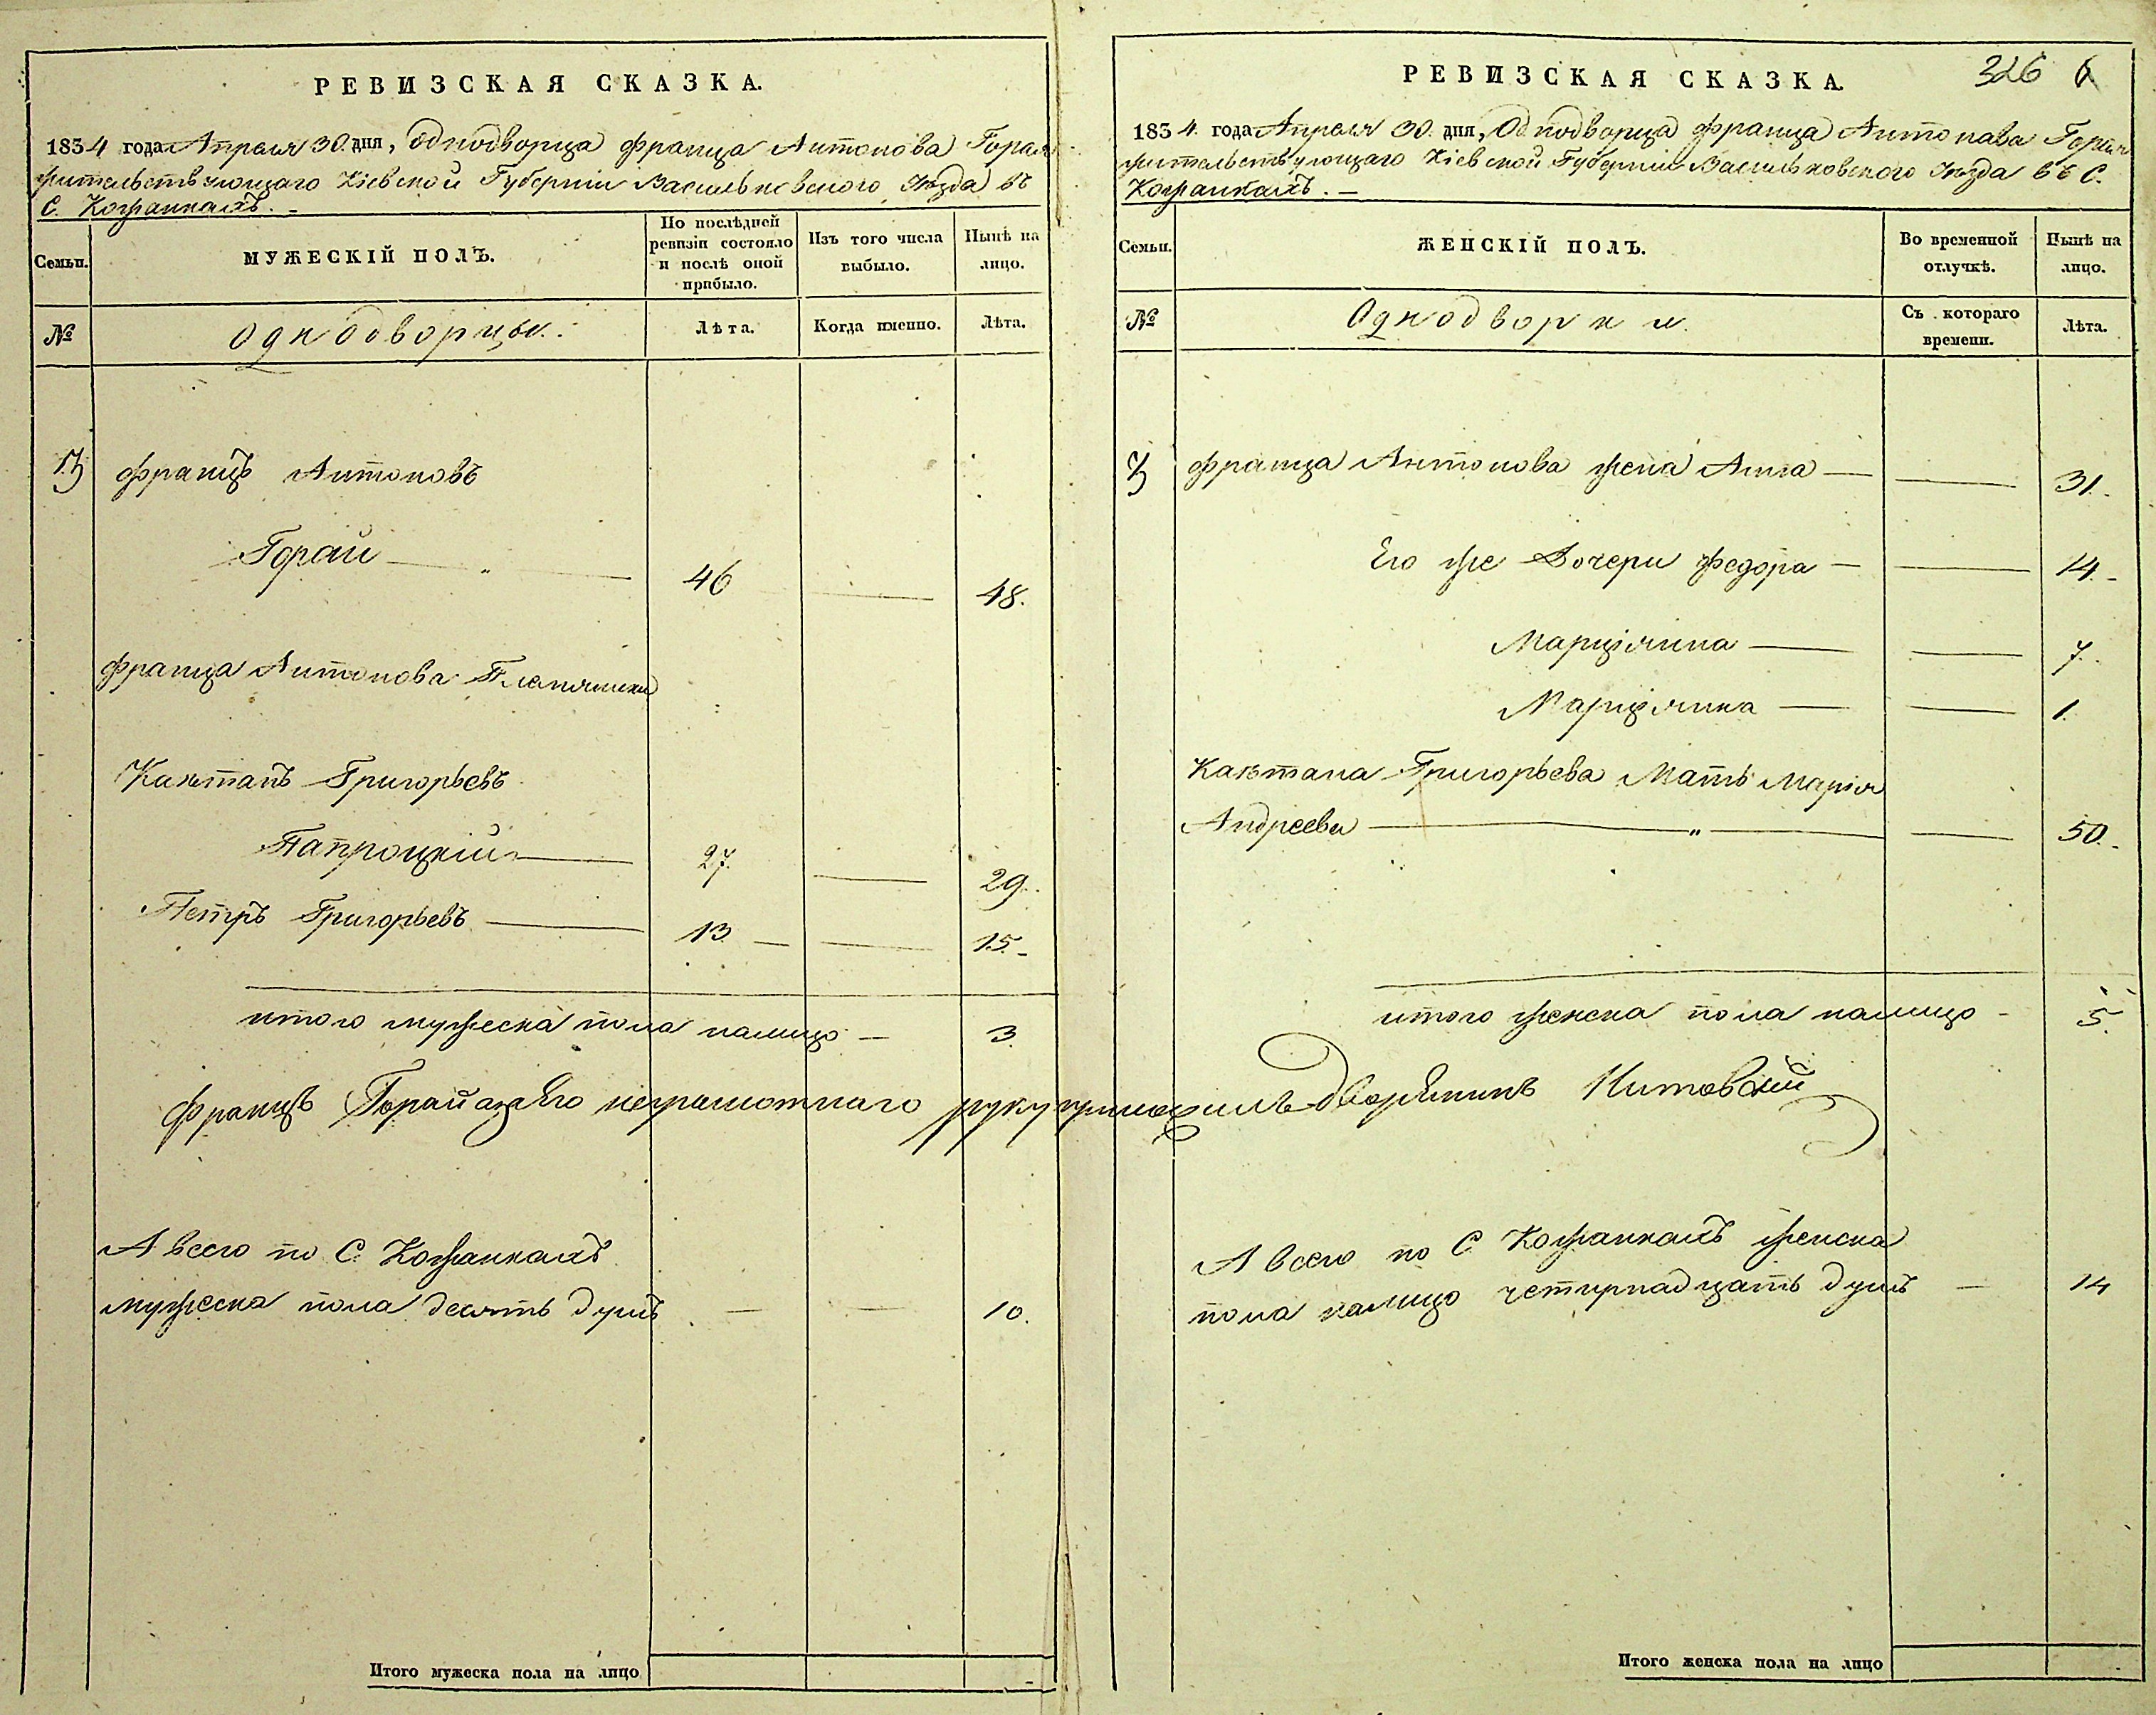 РЕВИЗСКАЯ СКАЗКА.
1834 года Апреля 30 дня, Однодворца Франца Антонова Горая
жительствующаго Кіевской Губерніи Васильковского Уезда въ
С. Кожанкахъ. -
Семьи.
МУЖЕСКІЙ ПОЛЪ.
По послѣдней ревизіи состояло и послѣ оной прибыло.
Изъ того числа выбыло.
Нынѣ на лицо.
№
Однодворцы.
Лѣта.
Когда именно.
Лѣта.
3 Францъ Антоновъ
Горай — „ — 46 — 48.
Франца Антонова Племянники
Каэтанъ Григорьевъ
Папроцкій — 27. — 29.
Петръ Григорьевъ — 13 — — 15. -
итого мужеска пола налицо — 3.
Францъ Горай а за Его неграмотнаго руку приложилъ дворянинъ Китовскій
А всего по С. Кожанкахъ
мужеска пола десять душъ — — 10.
Итого мужеска пола на лицо
326 6
РЕВИЗСКАЯ СКАЗКА.
1834. года Апреля 30. дня, Однодворца Франца Антонава Горая
жительствующаго Кіевской Губерніи Васильковского Уезда въ С.
Кожанкахъ. —
Семьи.
ЖЕНСКІЙ ПОЛЪ.
Во временной отлучкѣ.
Нынѣ на лицо.
№
Однодворки.
Съ котораго времени.
Лѣта.
3 Франца Антонова жена Анна — — 31. -
Его же Дочери Федора — — 14. -
Марціянна — — 7.
Марціянна — — 1.
Каэтана Григорьева Мать Марія
Андреева — „ — — 50. -
итого женска пола налицо - 5.
А всего по С. Кожанкахъ женска
пола налицо четырнадцать душъ — 14
Итого женска пола на лицо